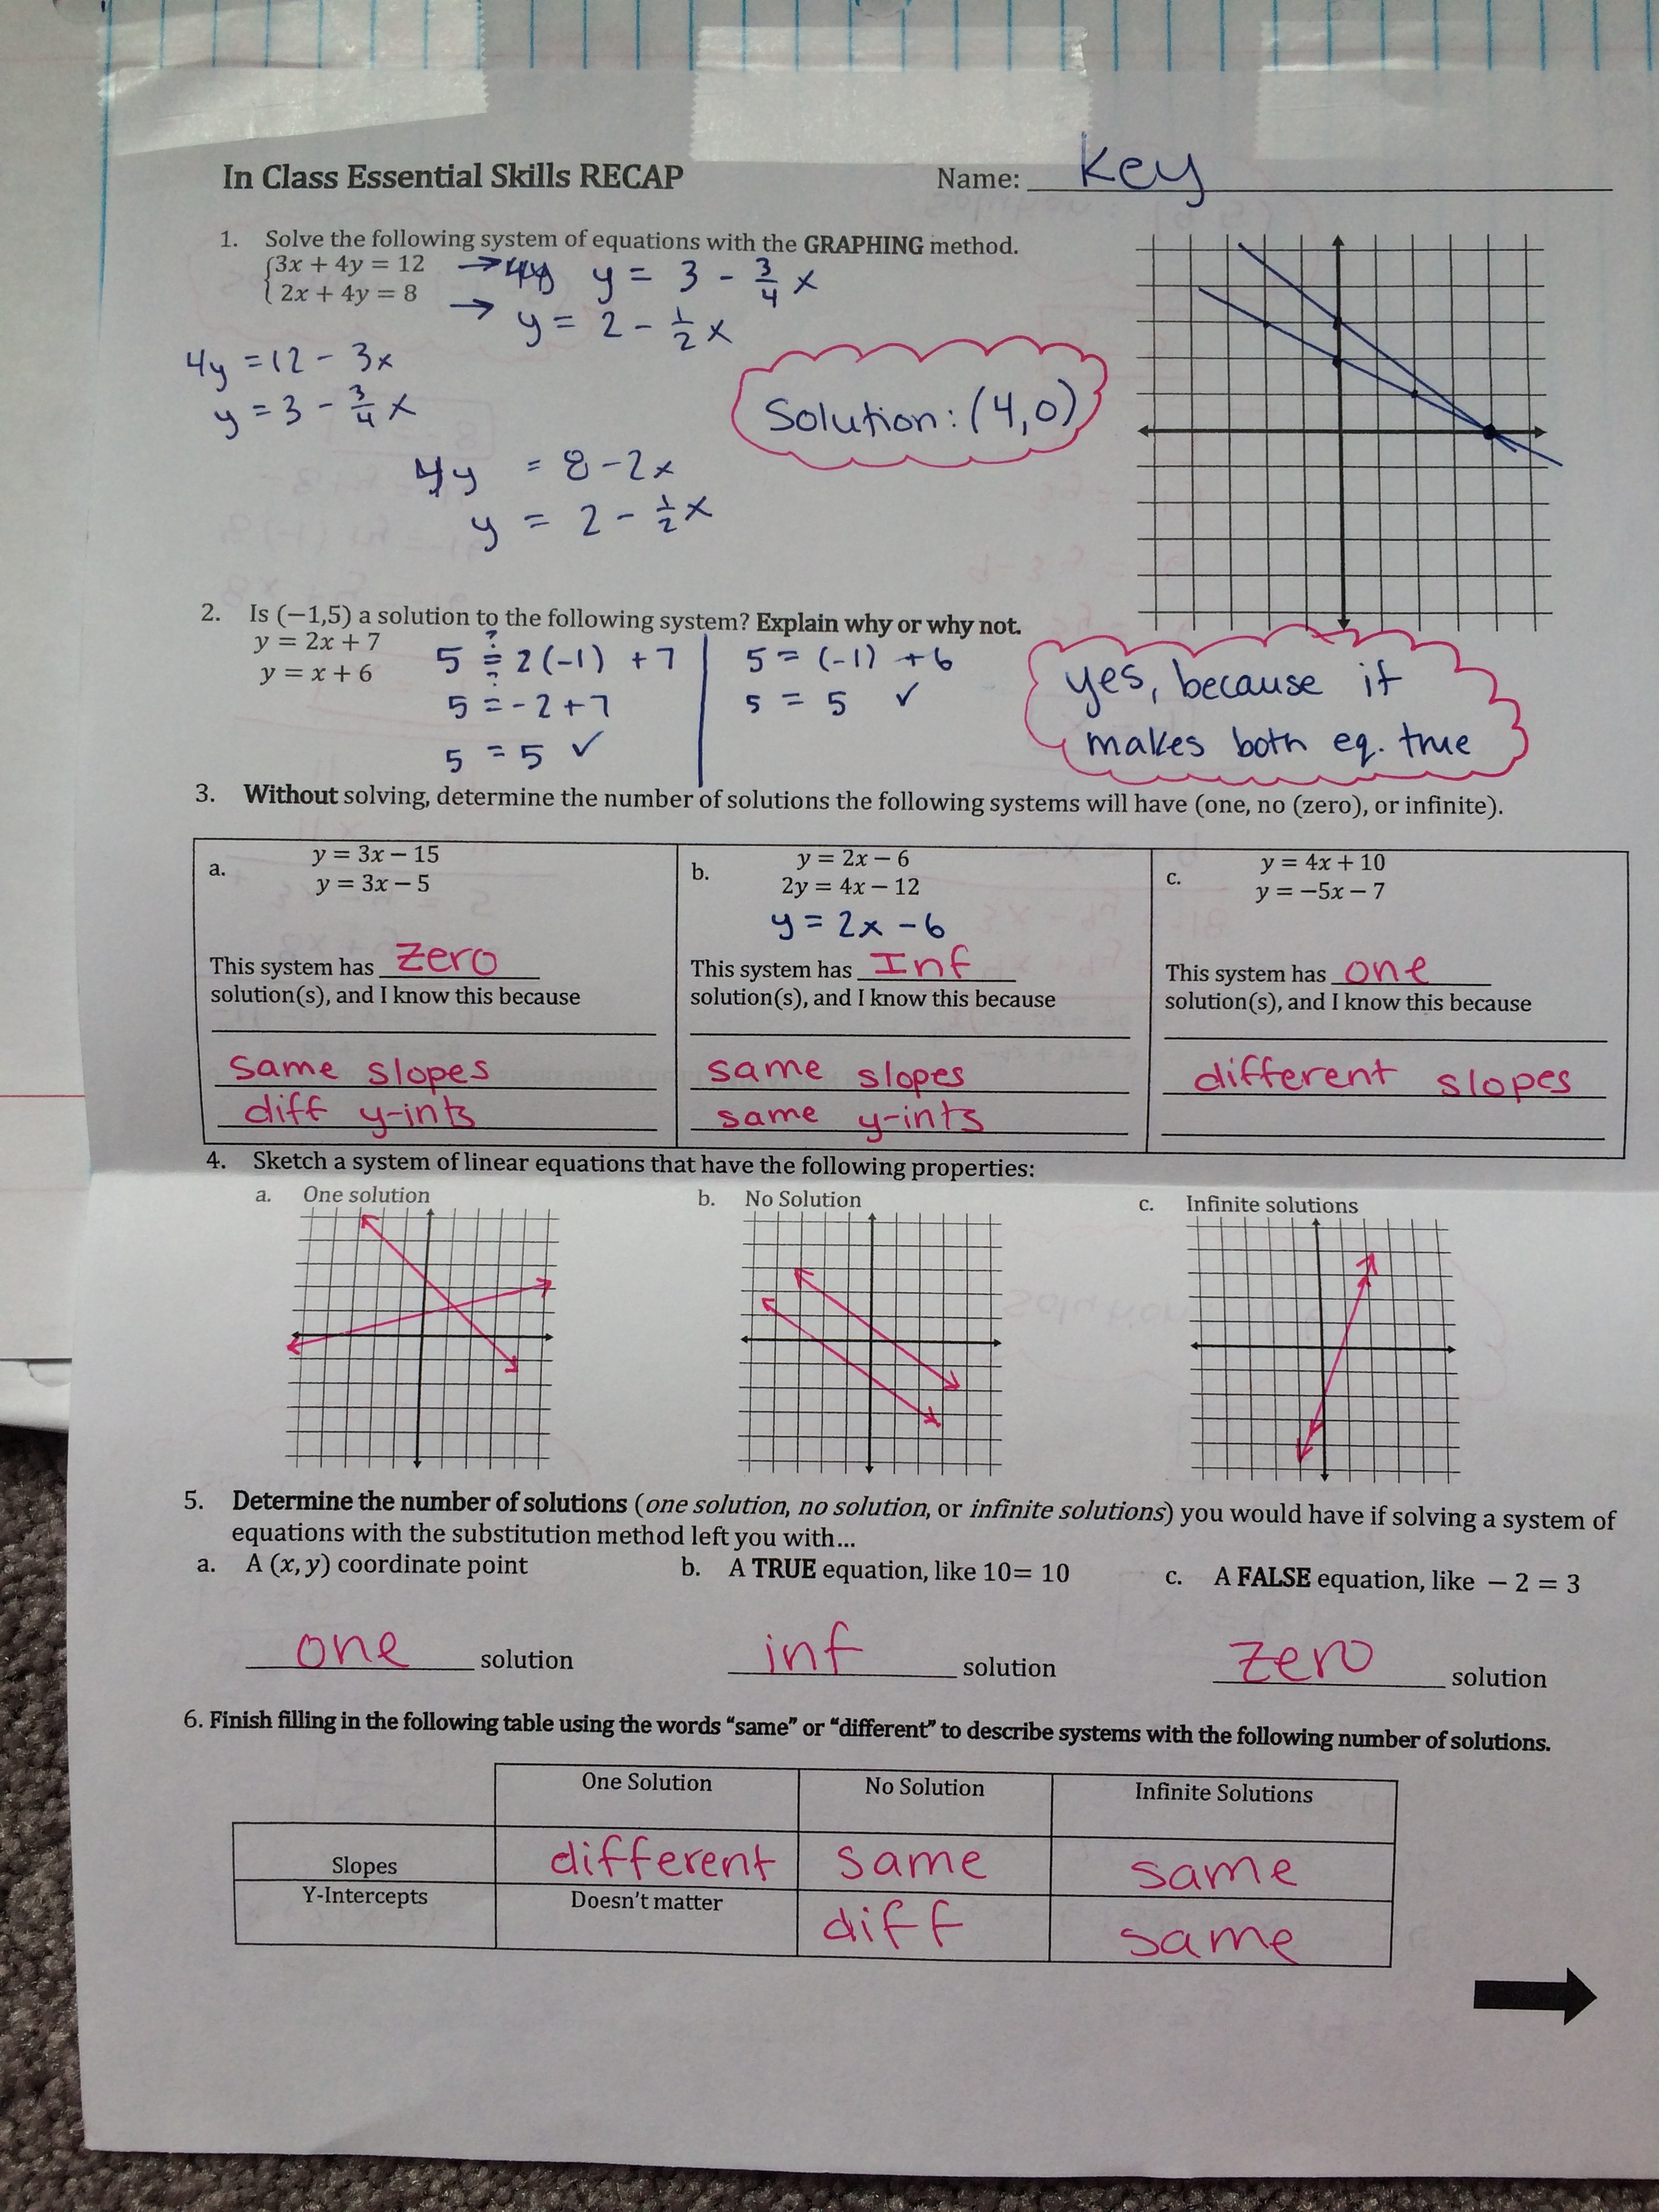 In Class Essential Skills RECAP Name: Key
1. Solve the following system of equations with the GRAPHING method.
3x + 4y = 12 → y = 3 - 3/4 x
2x + 4y = 8 → y = 2 - 1/2 x
4y = 12 - 3x
y = 3 - 3/4 x
Solution: (4,0)
4y = 8 - 2x
y = 2 - 1/2 x
2. Is (−1,5) a solution to the following system? Explain why or why not.
y = 2x + 7
y = x + 6
5 ≟ 2(-1) + 7
5 ≟ -2 + 7
5 = 5 ✓
5 = (-1) + 6
5 = 5 ✓
yes, because it
makes both eq. true
3. Without solving, determine the number of solutions the following systems will have (one, no (zero), or infinite).
a. y = 3x − 15
y = 3x − 5
This system has zero
solution(s), and I know this because
same slopes
diff y-ints
b. y = 2x − 6
2y = 4x − 12
y = 2x - 6
This system has Inf
solution(s), and I know this because
same slopes
same y-ints
c. y = 4x + 10
y = −5x − 7
This system has one
solution(s), and I know this because
different slopes
4. Sketch a system of linear equations that have the following properties:
a. One solution b. No Solution c. Infinite solutions
5. Determine the number of solutions (one solution, no solution, or infinite solutions) you would have if solving a system of
equations with the substitution method left you with...
a. A (x, y) coordinate point b. A TRUE equation, like 10= 10 c. A FALSE equation, like − 2 = 3
one solution inf solution zero solution
6. Finish filling in the following table using the words “same” or “different” to describe systems with the following number of solutions.
One Solution No Solution Infinite Solutions
Slopes different same same
Y-Intercepts Doesn't matter diff same